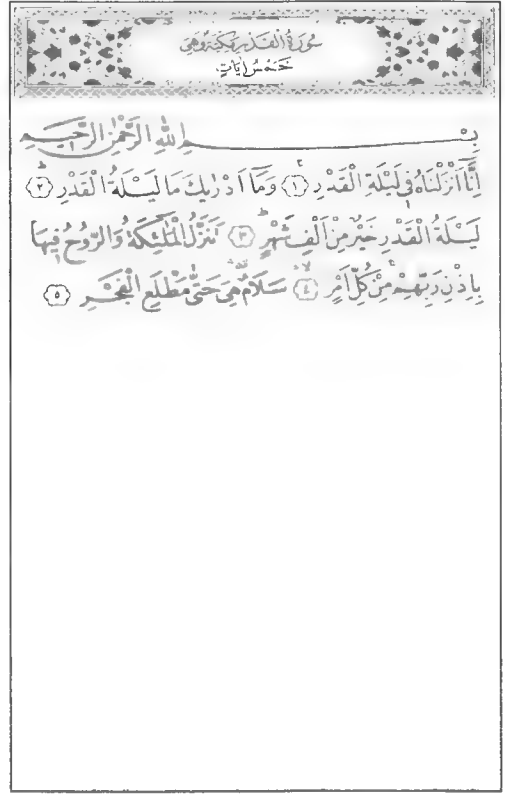 سُورَةُ الْقَدْرِ مَكِّيَّةٌ وَهِيَ
خَمْسُ اٰيَاتٍ
بِسْــــمِ اللّٰهِ الرَّحْمٰنِ الرَّحيــمِ
اِنَّٓا اَنْزَلْنَاهُ فٖي لَيْلَةِ الْقَدْرِۚ ﴿١﴾ وَمَٓا اَدْرٰيكَ مَا لَيْلَةُ الْقَدْرِۜ ﴿٢﴾
لَيْلَةُ الْقَدْرِ خَيْرٌ مِنْ اَلْفِ شَهْرٍۜ ﴿٣﴾ تَنَزَّلُ الْمَلٰٓئِكَةُ وَالرُّوحُ فٖيهَا
بِاِذْنِ رَبِّهِمْۚ مِنْ كُلِّ اَمْرٍۙۛ ﴿٤﴾ سَلَامٌ۠ۛ هِيَ حَتّٰى مَطْلَعِ الْفَجْرِ ﴿٥﴾